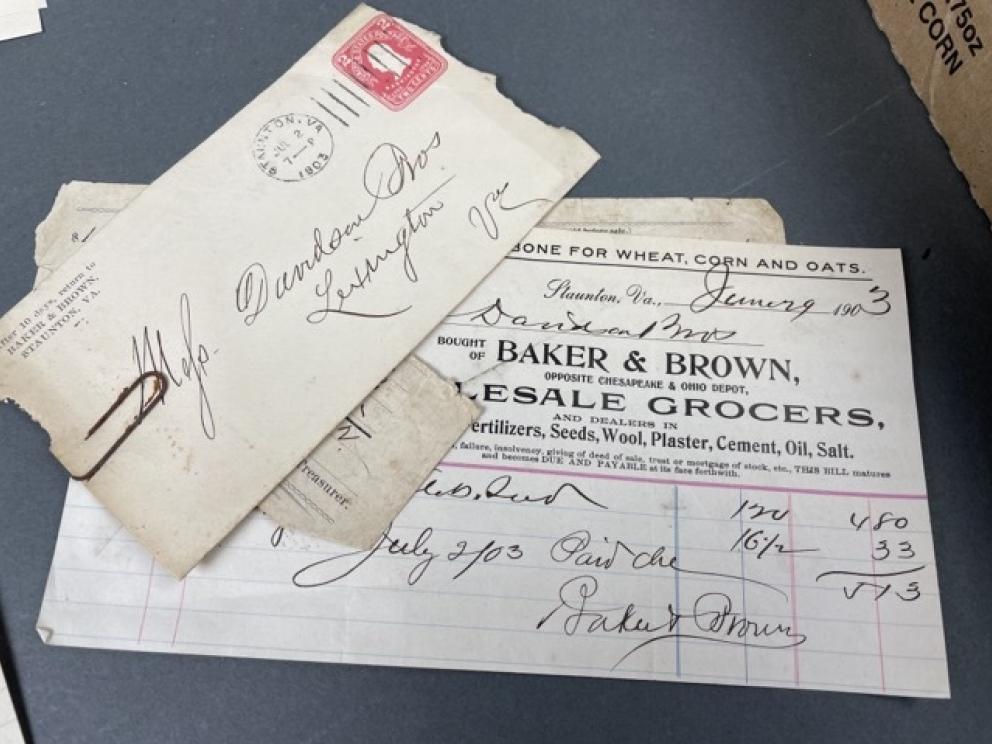 75oz
CORN
TWO CENTS
STAUNTON, VA.
JUL 2
7—P
1903
Davidson Bros
Lexington
Va
after 10 days, return to
BAKER & BROWN,
STAUNTON, VA.
Treasurer.
BONE FOR WHEAT, CORN AND OATS.
Staunton, Va., June 29 1903
Davidson Bros
BOUGHT OF BAKER & BROWN,
OPPOSITE CHESAPEAKE & OHIO DEPOT,
LESALE GROCERS,
AND DEALERS IN
ertilizers, Seeds, Wool, Plaster, Cement, Oil, Salt.
failure, insolvency, giving of deed of sale, trust or mortgage of stock, etc., THIS BILL matures
and becomes DUE AND PAYABLE at its face forthwith.
120 480
16½ 33
513
July 2/03 Paid
Baker & Brown